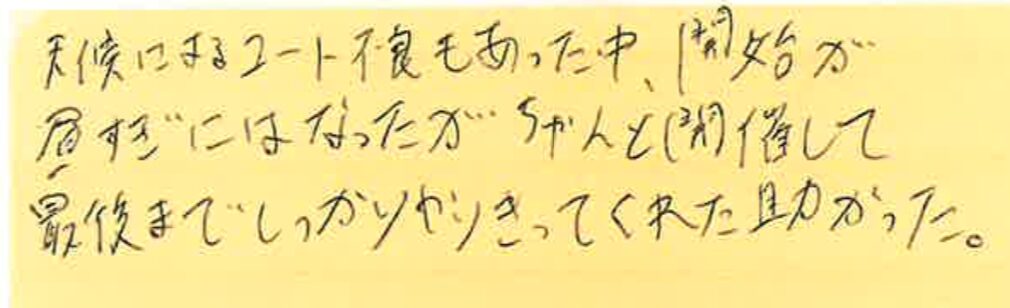 天候によるコート不良もあった中、開始が
昼すぎにはなったがちゃんと開催して
最後までしっかりやりきってくれた助かった。